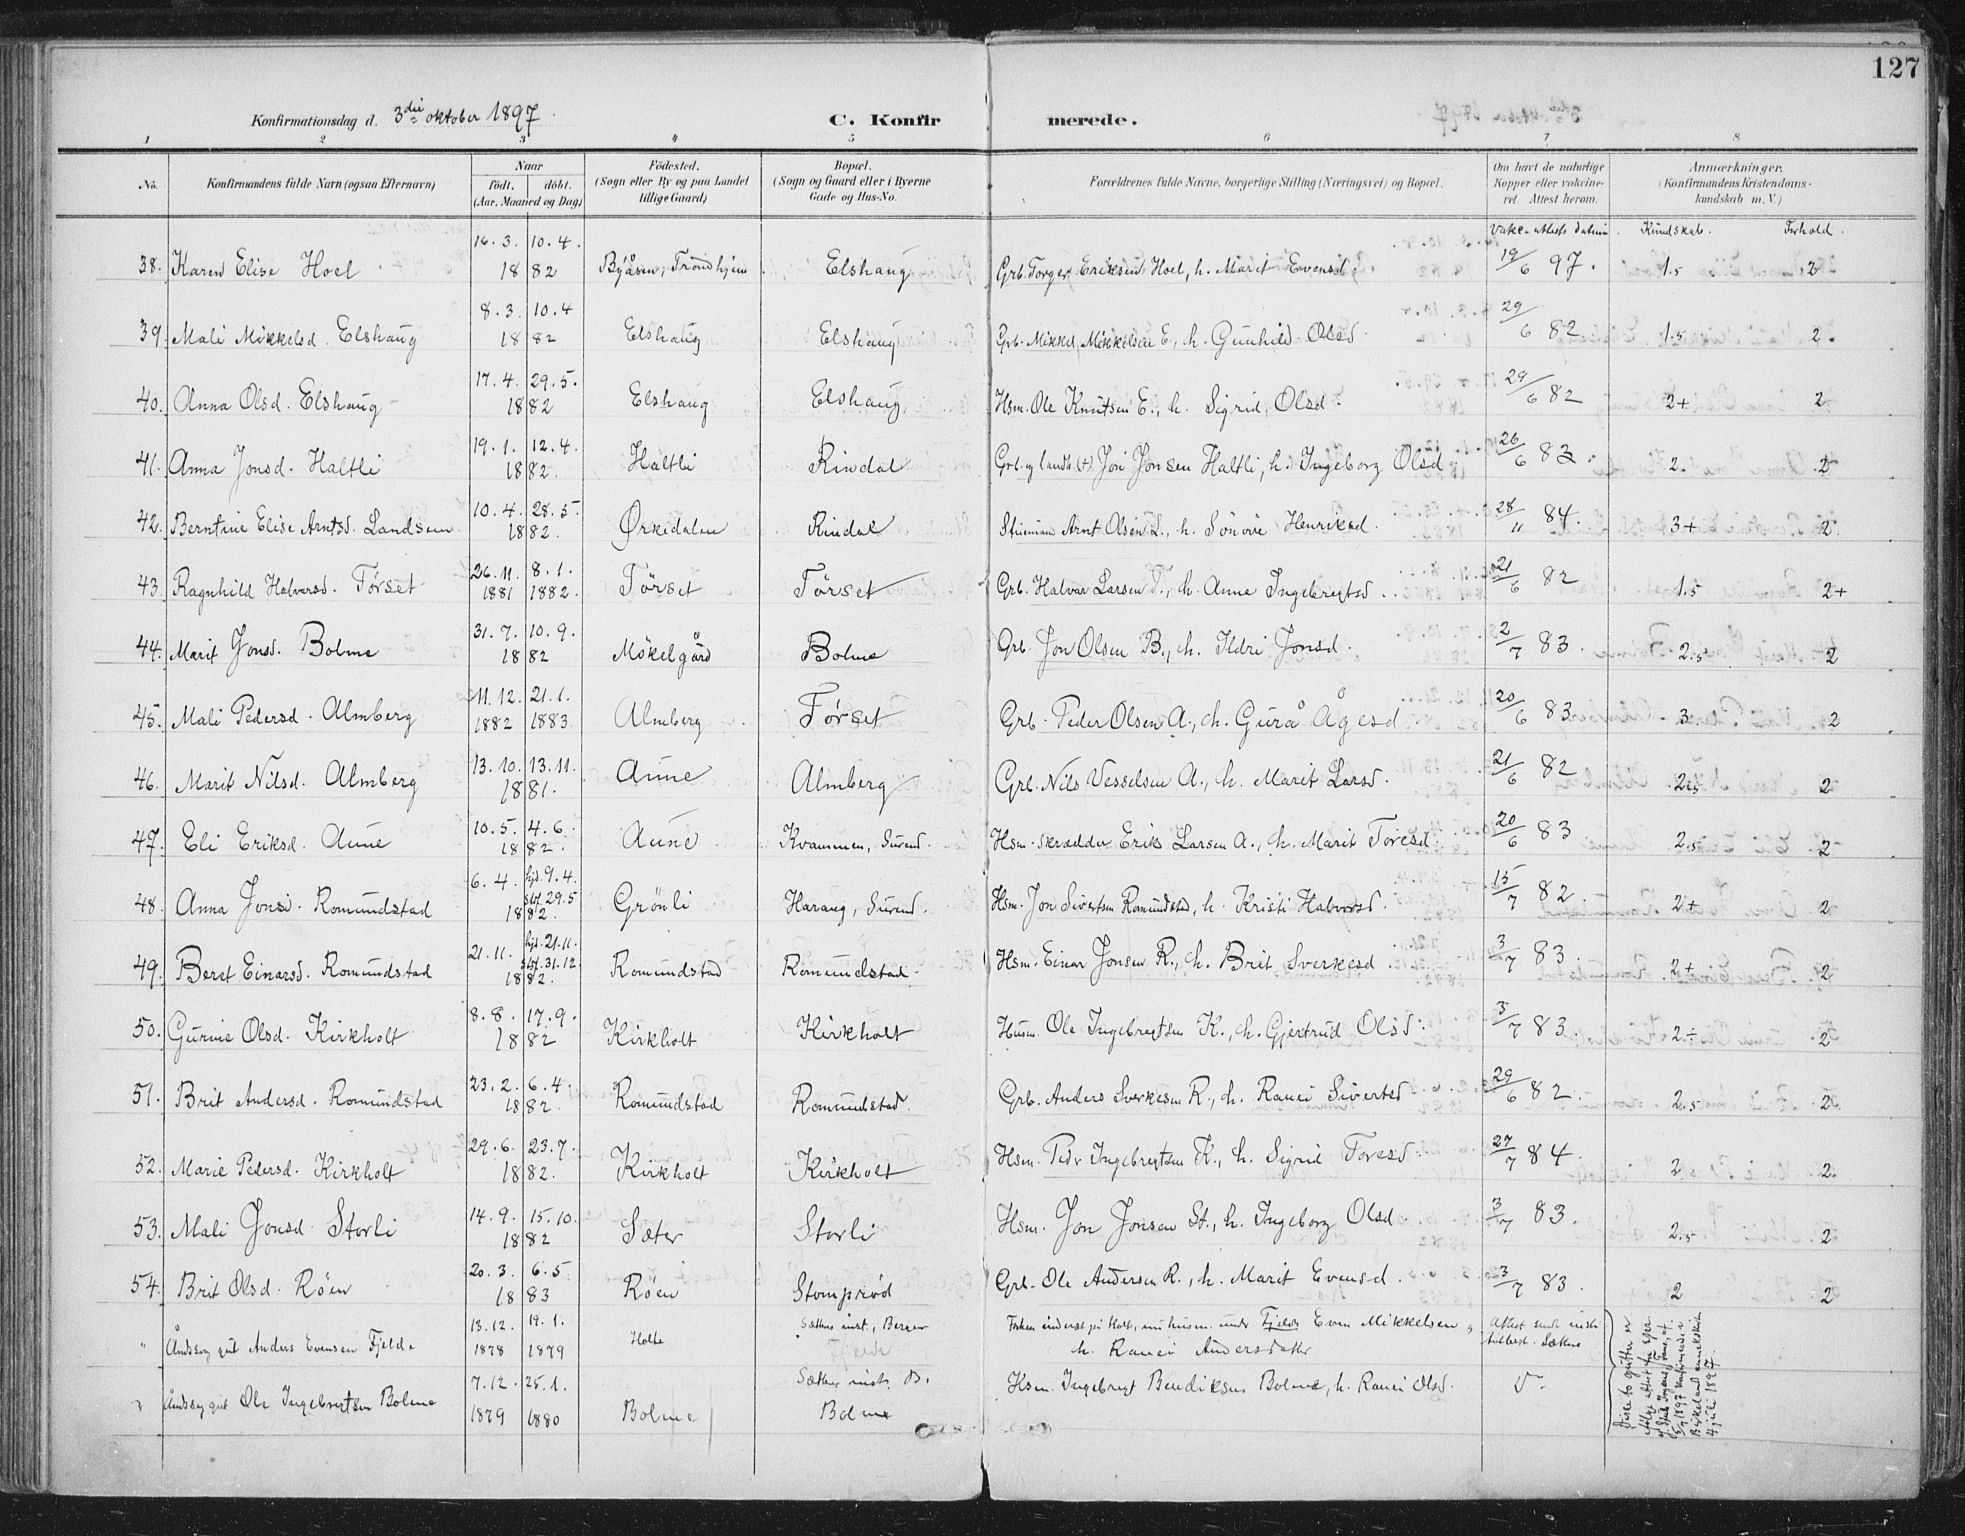 127
Konfirmationsdag d. 3die oktober 1897. C. Konfirmerede.
1 2 3 4 5 6 7 8
No. Konfirmandens fulde Navn (ogsaa Efternavn) Naar født. døbt. (Aar, Maaned og Dag) Fødested. (Sogn eller By og paa Landet tillige Gaard) Bopæl. (Sogn og Gaard eller i Byerne Gade og Hus-No. Forældrenes fulde Navne, borgerlige Stilling (Næringsvei) og Bopæl. Om havt de naturlige Kopper eller vakcineret. Attest herom. Anmærkninger. (Konfirmandens Kristendomskundskab m. V.)
Vakc.-attests datum. Kundskab. Forhold.
38. Karen Elise Hoel 16.3. 10.4. 1882 Byåsen, Trondhjem Elshaug Grb. Torger Eriksen Hoel, h. Marit Evensd. 19/6 97. 1.5 2
39. Mali Mikkelsd. Elshaug 8.3. 10.4 1882 Elshaug Elshaug Grb. Mikkel Mikkelsen E., h. Gunhild Olsd. 29/6 82. 1.5 2.
40. Anna Olsd. Elshaug 17.4. 29.5. 1882 Elshaug Elshaug Hsm. Ole Knutsen E., h. Sigrid Olsd. 29/6 82 2+ 2
41. Anna Jonsd. Haltli 19.1. 12.4. 1882. Haltli Rindal Grb. og landh. (+) Jon Jonsen Haltli, h. Ingeborg Olsd 26/6 83. 2. 2
42. Berntine Elise Arntsd. Landsem 10.4. 28.5. 1882. Ørkedalen Rindal Stuemand Arnt Olsen L., h. Sönövé Henriksd. 28/11 84. 3+ 2.
43. Ragnhild Halvorsd. Tørset 26.11. 8.1. 1881 1882. Tørset Tørset Grb. Halvor Larsen T., h. Anne Ingebrigtsd. 21/6 82 1.5 2+
44. Marit Jonsd. Bolme 31.7. 10.9. 1882 Møkelgård Bolme Grb. Jon Olsen B., h. Ildri Jonsd. 2/7 83. 2.5 2
45. Mali Pedersd. Almberg 11.12. 21.1. 1882 1883. Almberg Tørset Grb. Peder Olsen A., h. Gurå Ågesd 20/6 83 3. 2
46. Marit Nilsd. Almberg 13.10. 13.11. 1881. Aune Almberg Grb. Nils Vesselsen A., h. Marit Larsd. 21/6 82 2.5 2
47. Eli Eriksd. Aune 10.5. 4.6. 1882. Aune Kvammen, Surend. Hsm. skrædder Erik Larsen A., h. Marit Toresd. 20/6 83. 2.5 2
48. Anna Jonsd. Romundstad 6.4. hjd. 9.4. stf. 29.5 1882. Grønli Harang, Surend. Hsm. Jon Sivertsen Romundstad, h. Kristi Halvorsd. 15/7 82. 2+ 2
49. Beret Einarsd. Romundstad 21.11. hjd. 21.11. stf. 31.12. 1882. Romundstad Romundstad Hsm. Einar Jonsen R., h. Brit Sverkesd 3/7 83. 2+ 2
50. Gurine Olsd. Kirkholt 8.8. 17.9. 1882 Kirkholt Kirkholt Husm. Ole Ingebregtsen K., h. Gjertrud Olsd. 3/7 83. 2÷ 2
51. Brit Andersd. Romundstad 23.2. 6.4. 1882. Romundstad Romundstad. Grb. Anders Sverkesen R., h. Ranei Sivertsd 29/6 82. 2.5 2
52. Marie Pedersd. Kirkholt 29.6. 23.7. 1882. Kirkholt Kirkholt Hsm. Peder Ingebregtsen K., h. Sigrid Toresd. 27/7 84. 2 2
53. Mali Jonsd. Storli 14.9. 15.10. 1882 Sæter Storli Hsm. Jon Jonsen St., h. Ingeborg Olsd. 3/7 83. 2.5 2
54. Brit Olsd. Røen 20.3. 6.5 1883 Røen Stomprød Grb. Ole Andersen R., h. Marit Evensd. 3/7 83. 2 2
" Åndssvg gut Anders Evensen Fjelde 13.12. 19.1. 1878 1879 Holte Sæthres inst., Bergen Fjelde Even Mikkelsen, h. Ranei Andersdatter Attest sendt
" Åndssvg gut Ole Ingebrigtsen Bolme 7.12. 25.1. 1879 1880 Bolme Sæthres inst. B. Bolme Hsm. Ingebrigt Bendiksen Bolme, h. Ranei Olsd.
Disse to gutter er
4 juli 1897.